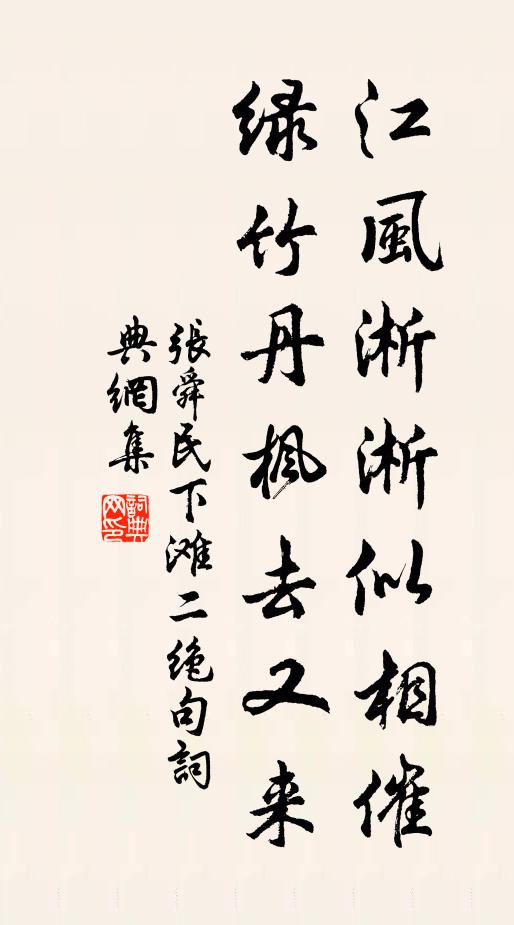 江風淅淅似相催
绿竹丹楓去又来
張舜民下滩二绝句詞
典網集
詞典
网印